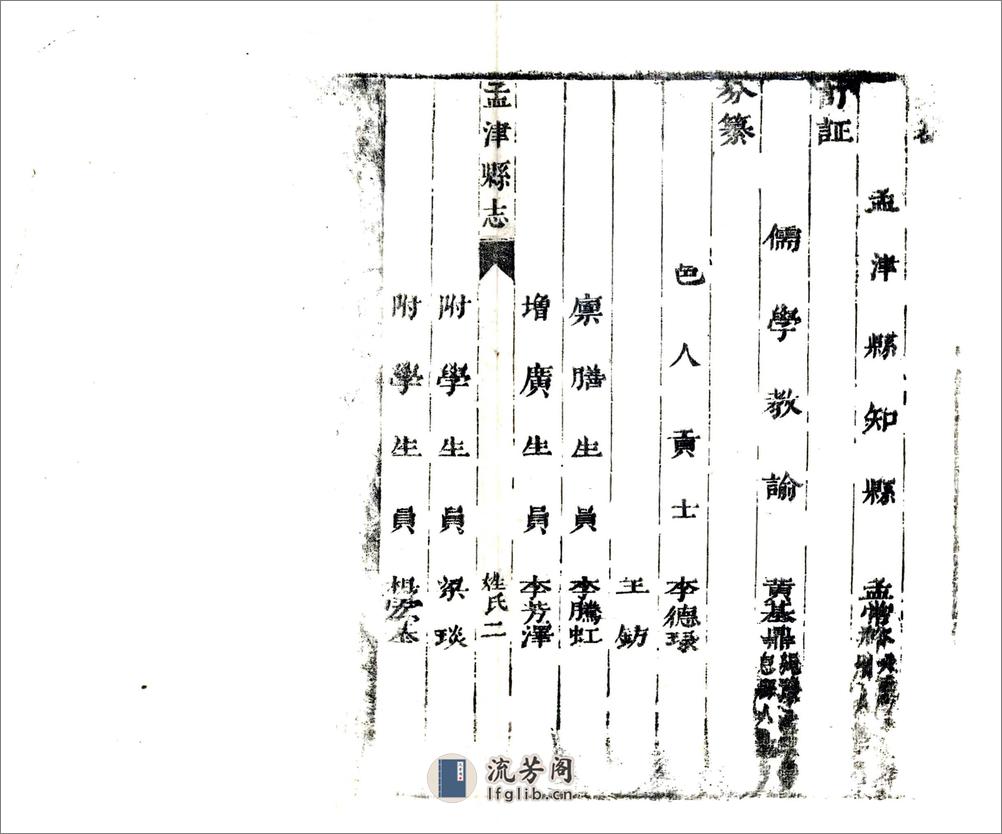 訂証
孟津縣知縣 孟常
儒學教諭 黃基鼎
分纂
邑人貢士 李德琭
王鈁
廪膳生員 李騰虹
增廣生員 李芳澤
孟津縣志 姓氏二
附學生員 梁琰
附學生員
流芳阁
lfglib.cn